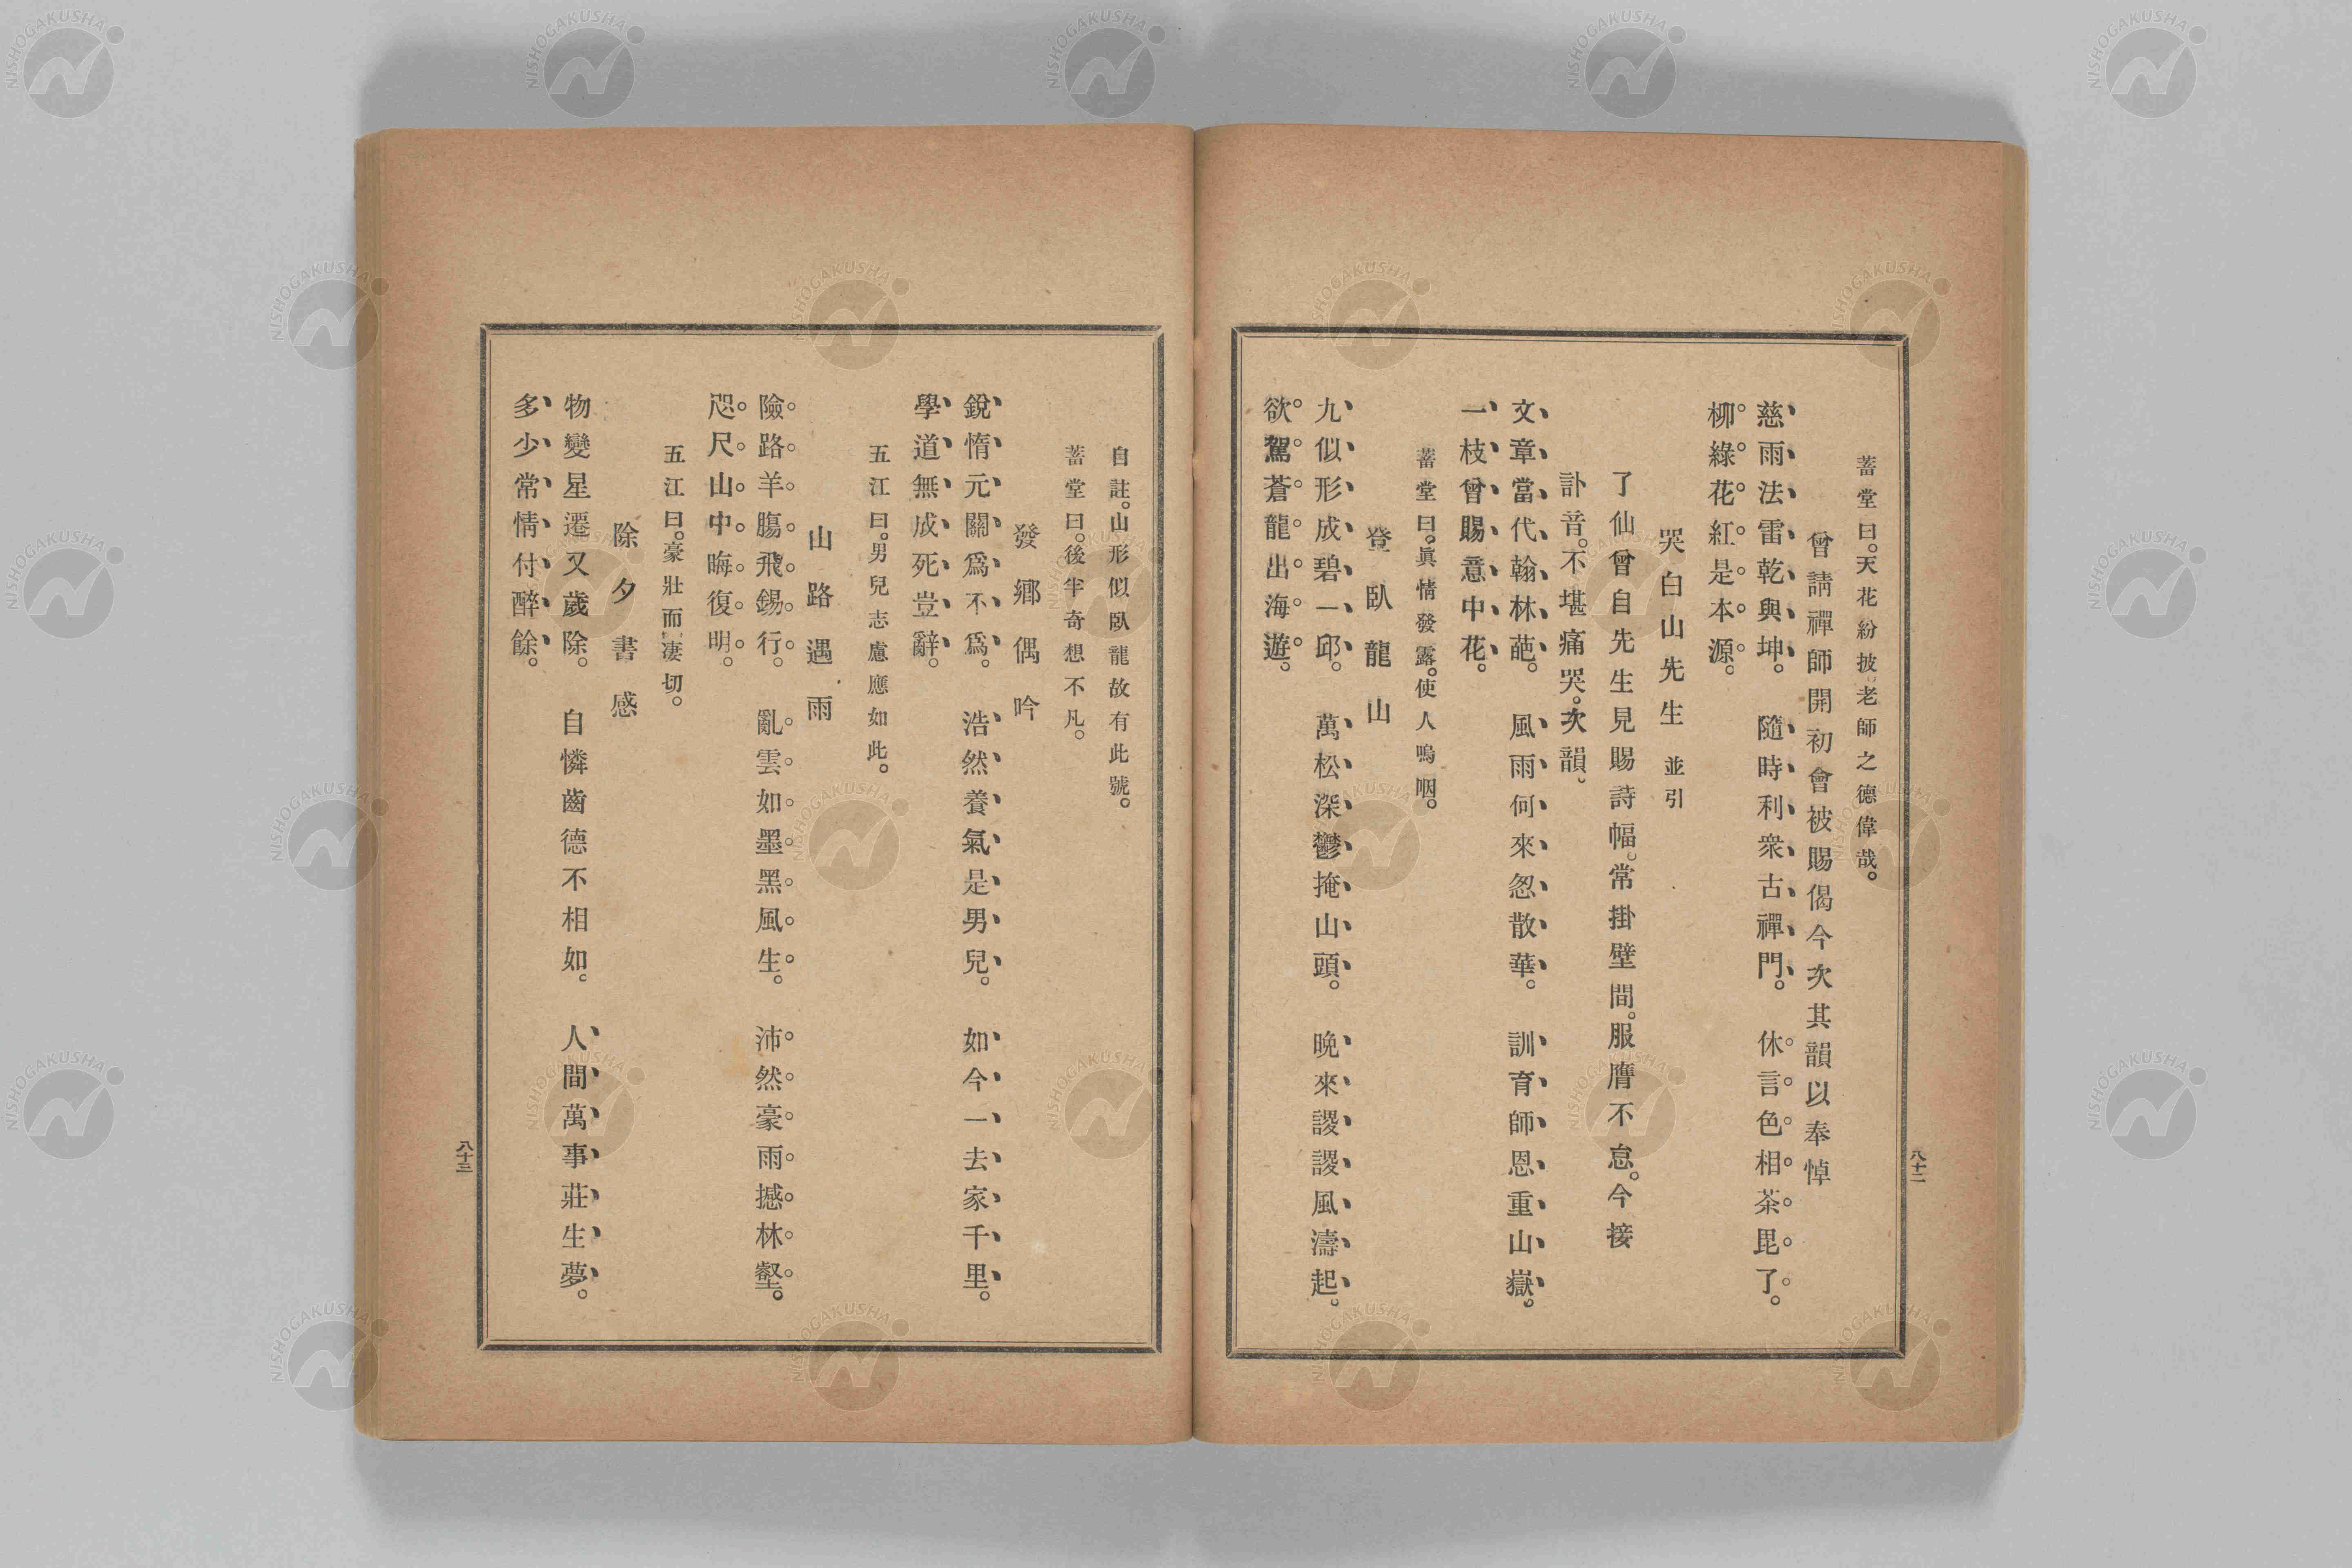 蓄堂曰。天花紛披。老師之德偉哉。
曾請禪師開初會被賜偈今次其韻以奉悼
慈雨法雷乾與坤。　隨時利衆古禪門。　休言色相茶毘了。
柳綠花紅是本源。
哭白山先生　並引
了仙曾自先生見賜詩幅。常掛壁間。服膺不怠。今接
訃音。不堪痛哭。次韻。
文章當代翰林葩。　風雨何來忽散華。　訓育師恩重山嶽。
一枝曾賜意中花。
蓄堂曰。眞情發露。使人嗚咽。
登臥龍山
九似形成碧一邱。　萬松深鬱掩山頭。　晚來謖謖風濤起。
欲駕蒼龍出海遊。
八十二
自註。山形似臥龍故有此號。
蓄堂曰。後半奇想不凡。
發鄉偶吟
銳惰元關爲不爲。　浩然養氣是男兒。　如今一去家千里。
學道無成死豈辭。
五江曰。男兒志慮應如此。
山路遇雨
險路羊膓飛錫行。　亂雲如墨黑風生。　沛然豪雨撼林壑。
咫尺山中晦復明。
五江曰。豪壯而凄切。
除夕書感
物變星遷又歲除。　自憐齒德不相如。　人間萬事莊生夢。
多少常情付醉餘。
八十三
NISHOGAKUSHA